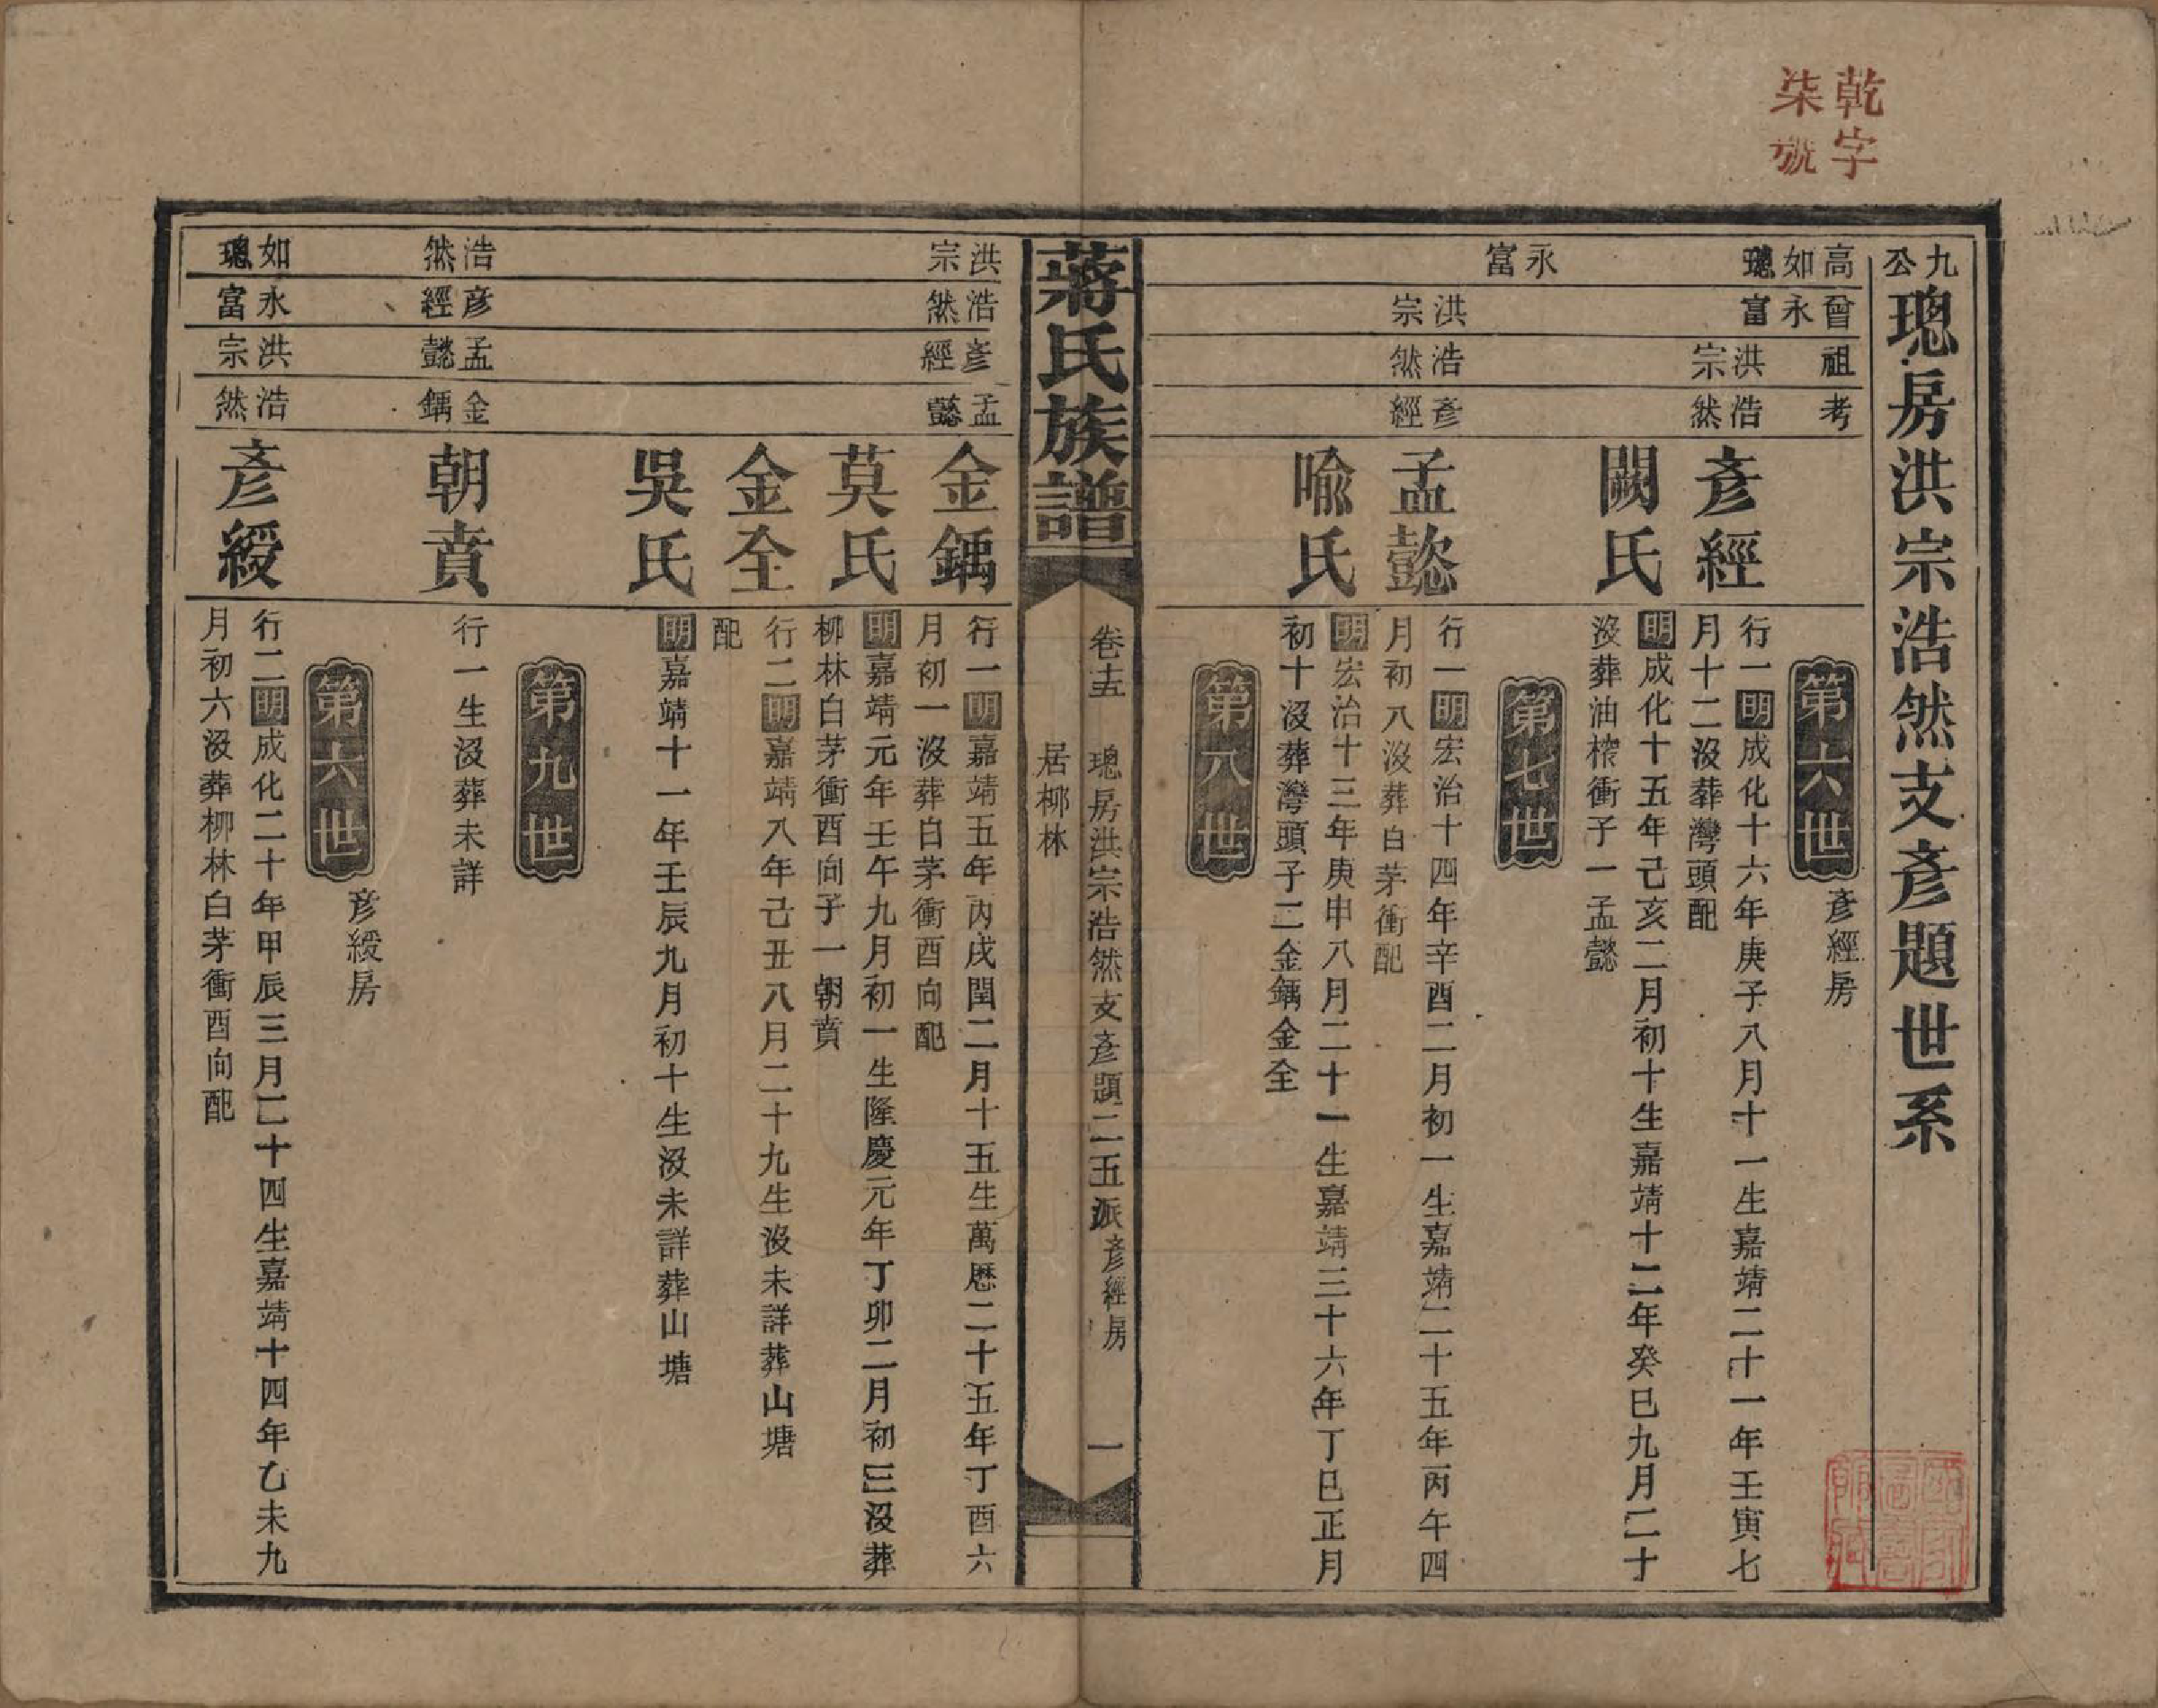 乾字
柒號
九公璁房洪宗浩然支彥題世系
高曾祖考
如璁
永富
洪宗
浩然
第六世
彥經房
彥經
行一明成化十六年庚子八月十一生嘉靖二十一年壬寅七
月十二沒葬灣頭配
闕氏
明成化十五年己亥二月初十生嘉靖十二年癸巳九月二十
沒葬油榨衝子一孟懿
第七世
永富
洪宗
浩然
彥經
孟懿
行一明宏治十四年辛酉二月初一生嘉靖二十五年丙午四
月初八沒葬白茅衝配
喩氏
明宏治十三年庚申八月二十一生嘉靖三十六年丁巳正月
初十沒葬灣頭子二金鍝金全
第八世
蔣氏族譜
卷十五
璁房洪宗浩然支彥題二五派彥經房
居柳林
一
洪宗
浩然
彥經
孟懿
金鍝
行一明嘉靖五年丙戌閏二月十五生萬歷二十五年丁酉六
月初一沒葬白茅衝酉向配
莫氏
明嘉靖元年壬午九月初一生隆慶元年丁卯二月初三沒葬
柳林白茅衝酉向子一朝賁
金全
行二明嘉靖八年己丑八月二十九生沒未詳葬山塘
配
吳氏
明嘉靖十一年壬辰九月初十生沒未詳葬山塘
第九世
浩然
彥經
孟懿
金鍝
朝賁
行一生沒葬未詳
第六世
彥綬房
如璁
永富
洪宗
浩然
彥綬
行二明成化二十年甲辰三月二十四生嘉靖十四年乙未九
月初六沒葬柳林白茅衝酉向配